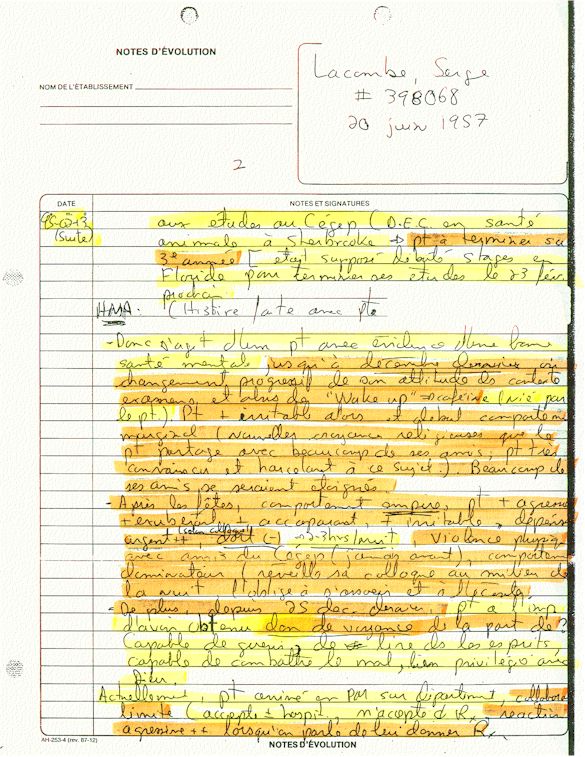 NOTES D'ÉVOLUTION
NOM DE L'ÉTABLISSEMENT
Lacombe, Serge
# 398068
20 juin 1957
2
DATE
NOTES ET SIGNATURES
(suite)
aux études au Cégep (D.E.C. en santé
animale à Sherbrooke → pt à terminer sa
3e année [était supposé débuté stages en
Floride pour terminer ses études le 23 févr
prochain
HMA: (Histoire faite avec pte
- Donc s'agit d'un pt avec évidence d'une bonne
santé mentale jusqu'à décembre dernier où
changement progressif de son attitude ds contexte
examens et abus de "Wake up" → caféine (nié par
le pt). Pt + irritable alors et global comportement
marginal (nouvelles croyance religieuses que le
pt partage avec beaucoup de ses amis, pt très
convaincu et harcelant à ce sujet.) Beaucoup de
ses amis se seraient éloignés.
- Après les fêtes, comportement empire, pt + agressif
+ exubérant, + accaparant, + irritable, dépense
argent ++ (selon collègue) dort (-) → 2-3 hrs/nuit. Violence physique
avec amis du Cégep (jamais avant), comportement
dominateur (réveille sa collogue au milieu de
la nuit l'oblige à s'asseoir et à l'écouter
- De plus, depuis 25 déc. dernier, pt a l'imp
d'avoir obtenu don de voyance de la part de ?
Capable de guérir, de lire ds les esprits,
capable de combattre le mal, lien privilégié avec
Dieu
Actuellement, pt arrivé en PM sur département, collabora
limite (accepte ± hospit, n'accepte Ø Rx, réaction
agressive ++ lorsqu'on parle de lui donner Rx
AH-253-4 (rev. 87-12)
NOTES D'ÉVOLUTION